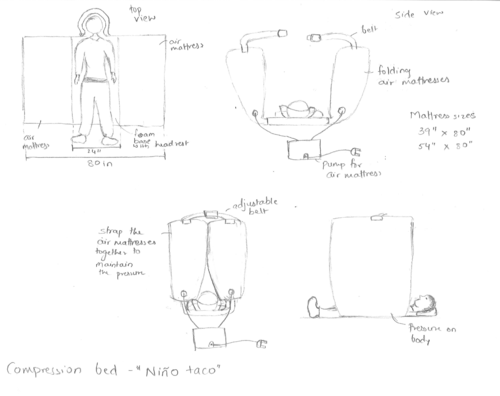 top
view
air
mattress
air
mattress
foam
base
with headrest
24"
80 in
Side view
belt
folding
air mattresses
Mattress sizes
39" x 80"
54" x 80"
pump for
air mattress
adjustable
belt
strap the
air mattresses
together to
maintain
the pressure
Pressure on
body
Compression bed - "Niño taco"